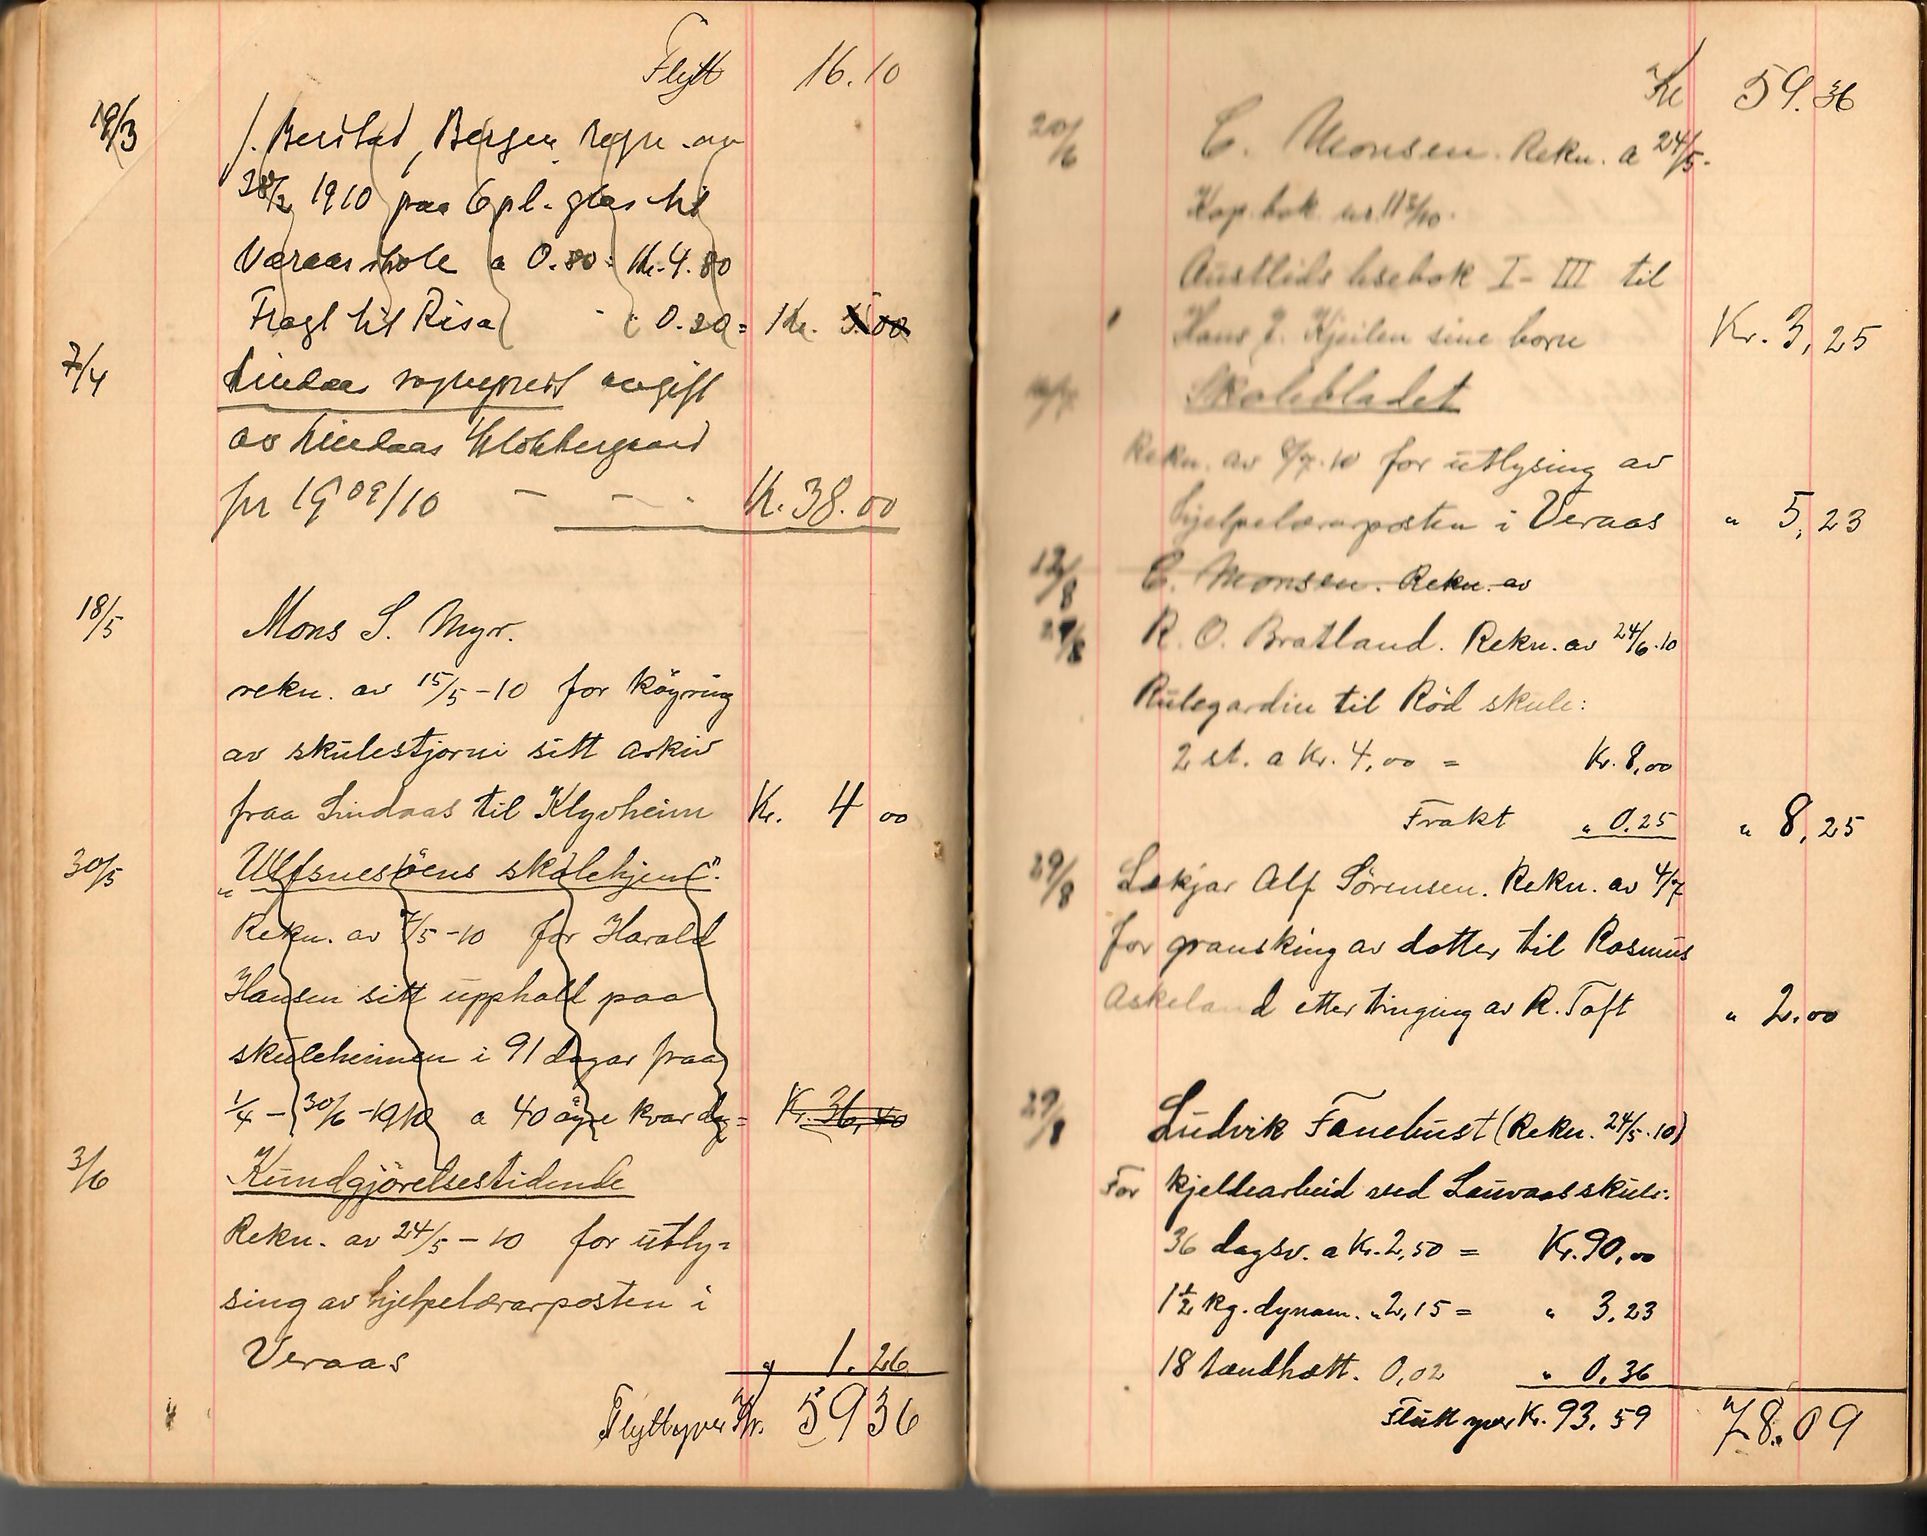 Flytt 16.10
19/3 J. Berstad, Bergen, regn. av
28/2 1910 paa 6 pl. glas til
Veraas skole a 0.80 = Kr. 4.80
Fragt til Risa " 0.20 = Kr. 5.00
7/4 Lindaas sogneprest avgift
av Lindaas Klokkergaard
for 1909/10 - - - Kr. 38.00
18/5 Mons S. Myr.
rekn. av 15/5-10 for köyring
av skulestjorni sitt arkiv
fraa Lindaas til Klyvheim Kr. 4 00
30/5 „Ulfsnesöens skolehjem".
Rekn. av 7/5-10 for Harald
Hansen sitt upphald paa
skuleheimen i 91 dagar fraa
1/4 - 30/6 -1910 a 40 öyre kvar dag = Kr. 36,40
3/6 Kundgjörelsestidende
Rekn. av 24/5 - 10 for utly=
sing av hjelpelærarposten i
Veraas " 1.26
Flyttyver Kr. 5936
Kr 59.36
20/6 C. Monsen. Rekn. a 24/5.
Kop. bok nr.
Austlids lesebok I - III til
Hans J. Kjeilen sine born Kr. 3,25
Skolebladet
Rekn. av 8/7.10 for utlysing av
hjelpelærarposten i Veraas " 5,23
12/8 C. Monsen. Rekn. av
29/8 R. O. Bratland. Rekn. av 24/6.10
Rulegardin til Rød skule:
2 st. a Kr. 4,00 = Kr. 8,00
Frakt " 0.25 " 8,25
29/8 Lækjar Alf Sörensen. Rekn. av 4/7
for gransking av dotter til Rasmus
Askeland etter tinging av R. Toft " 2.00
29/8 Ludvik Fanebust (Rekn. 24/5.10)
For kjellearbeid ved Lauvaas skule:
36 dagsv. a Kr. 2,50 = Kr. 90,00
1 1/2 kg. dynam. " 2,15 = " 3,23
18 tændhætt. 0,02 " 0,36
Flutt yver Kr. 93.59 78.09